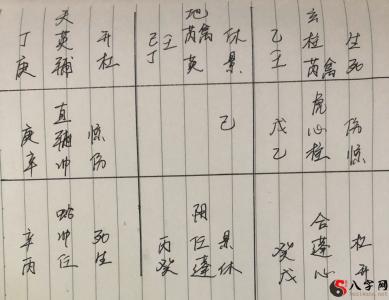 丁庚
天英辅
开杜
己丁
壬
地芮禽英
休景
乙壬
玄柱芮禽
生死
庚辛
直辅冲
惊伤
己
戊乙
虎心柱
伤惊
辛丙
蛇冲任
死生
丙癸
阴任蓬
景休
癸戊
合蓬心
杜开
八字网